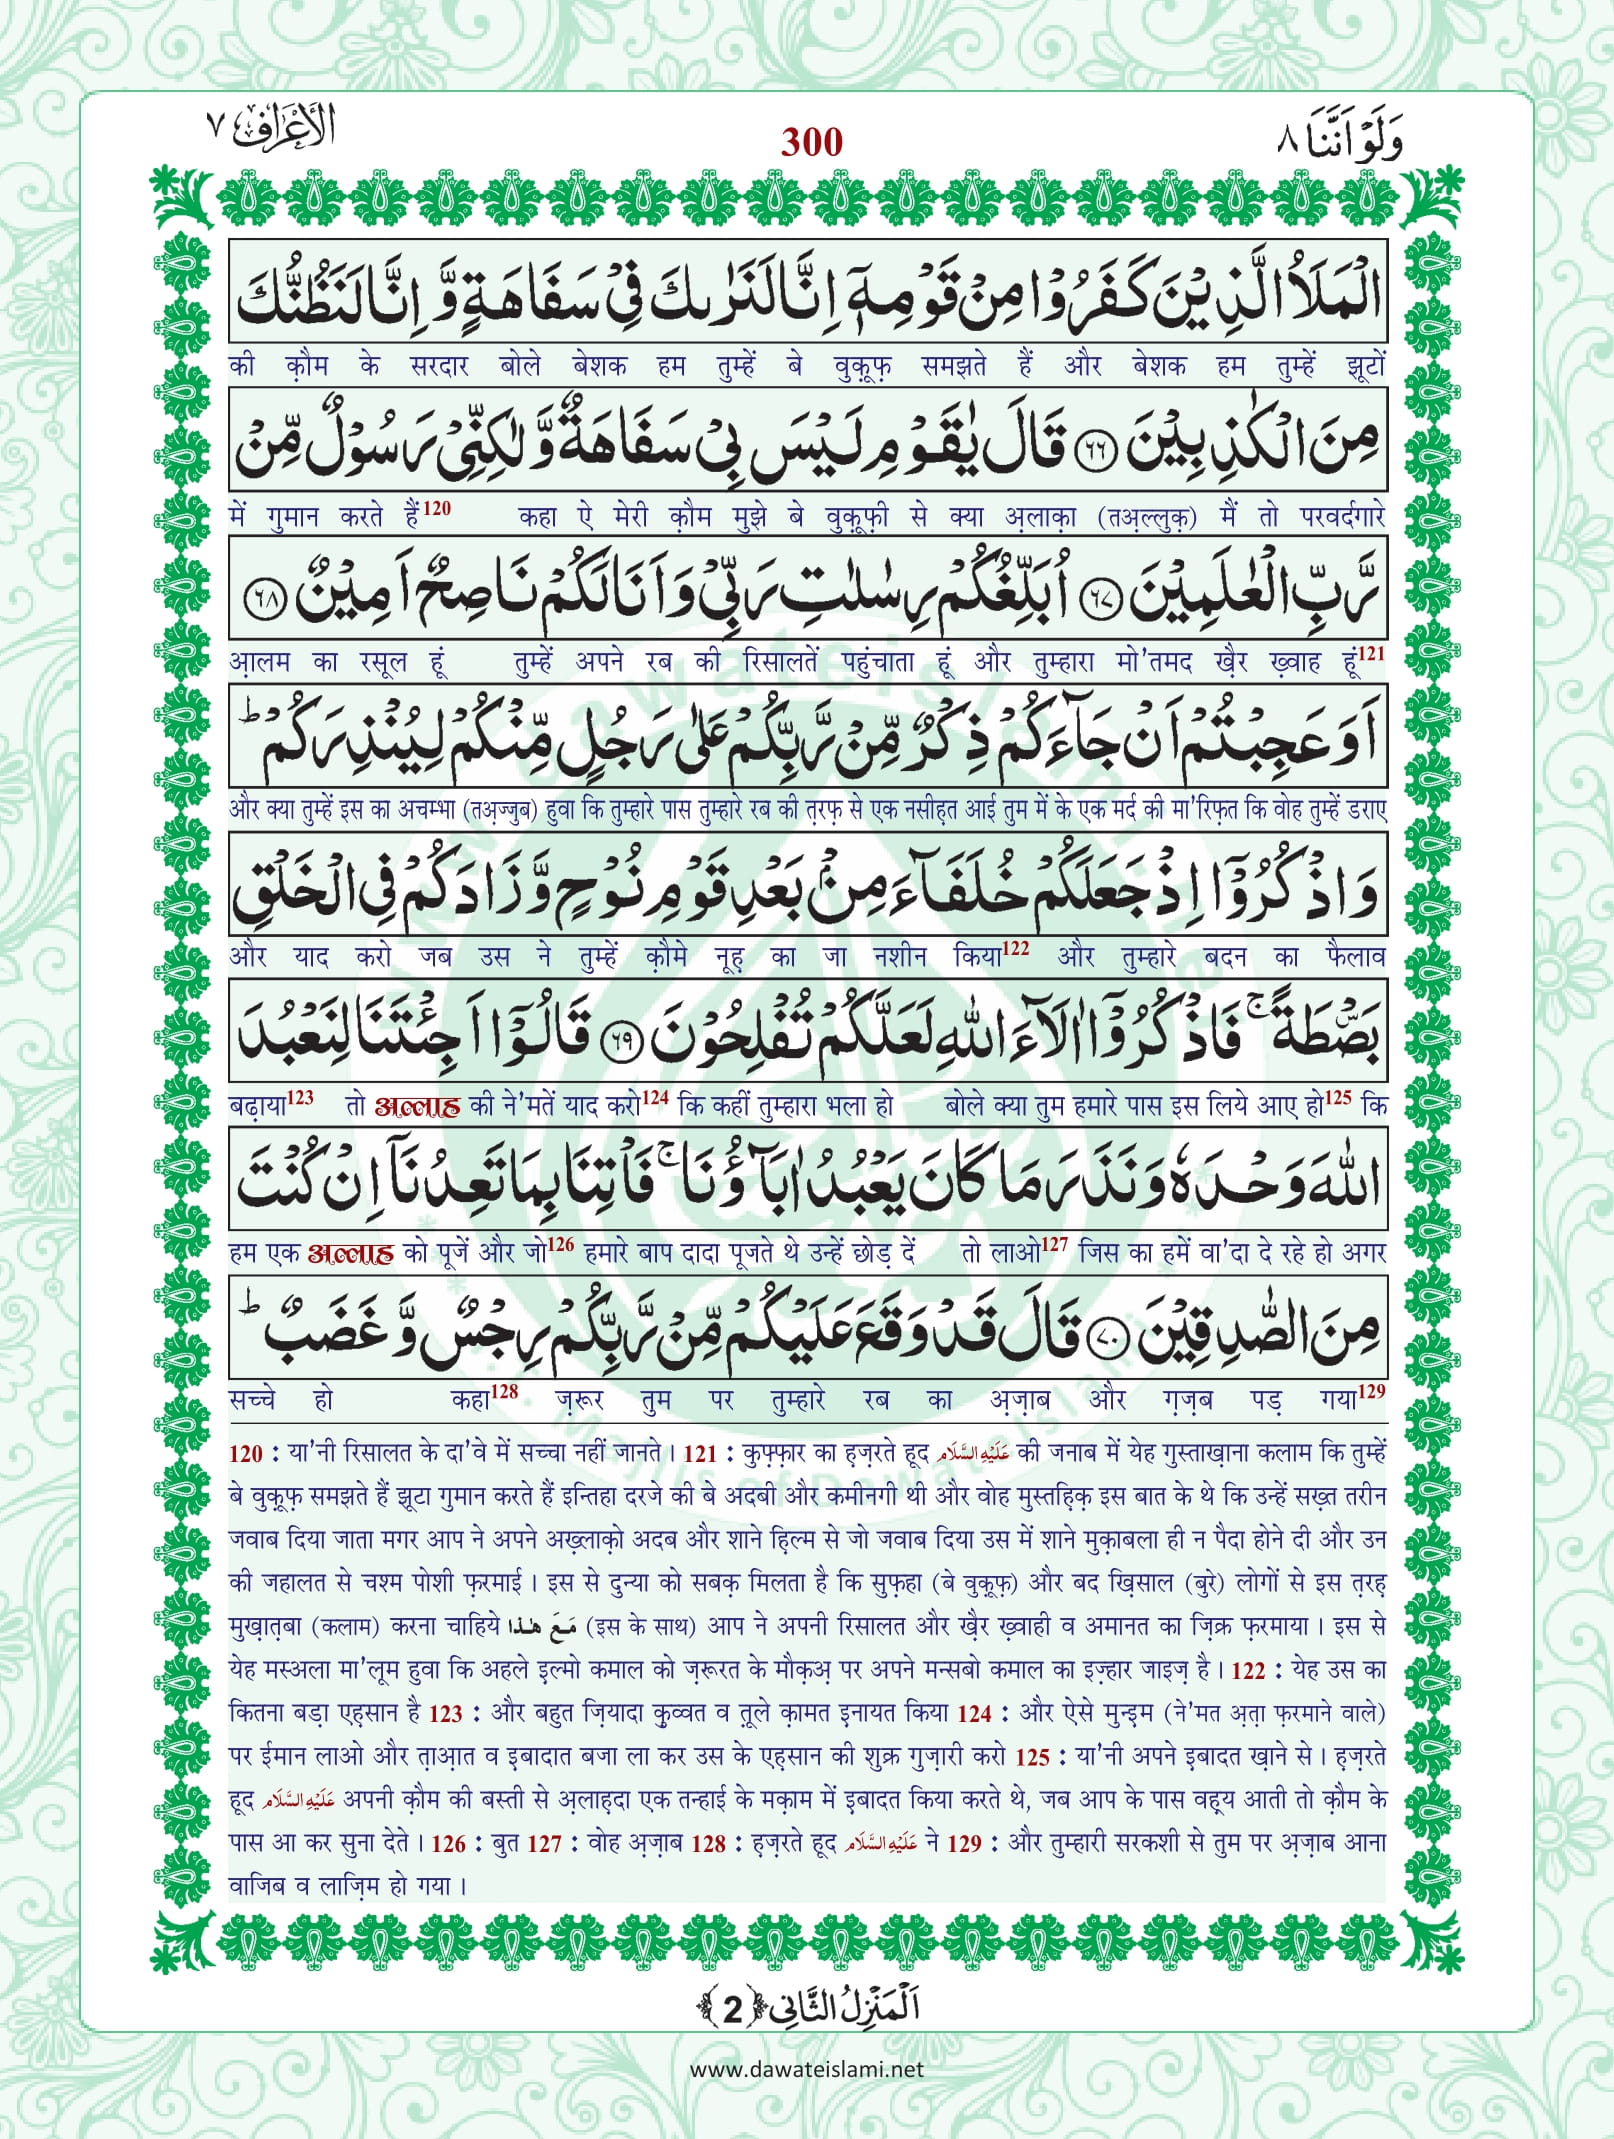 وَلَوْ اَنَّنَا ٨
300
الْاَعْرَاف ٧
الْمَلَاُ الَّذِيْنَ كَفَرُوْا مِنْ قَوْمِهٖۤ اِنَّا لَنَرٰىكَ فِيْ سَفَاهَةٍ وَّ اِنَّا لَنَظُنُّكَ
की क़ौम के सरदार बोले बेशक हम तुम्हें बे वुक़ूफ़ समझते हैं और बेशक हम तुम्हें झूटों
مِنَ الْكٰذِبِيْنَ ۝٦٦ قَالَ يٰقَوْمِ لَيْسَ بِيْ سَفَاهَةٌ وَّ لٰكِنِّيْ رَسُوْلٌ مِّنْ
में गुमान करते हैं120 कहा ऐ मेरी क़ौम मुझे बे वुक़ूफ़ी से क्या अ़लाक़ा (तअ़ल्लुक़) मैं तो परवर्दगारे
رَّبِّ الْعٰلَمِيْنَ ۝٦٧ اُبَلِّغُكُمْ رِسٰلٰتِ رَبِّيْ وَ اَنَا لَكُمْ نَاصِحٌ اَمِيْنٌ ۝٦٨
आ़लम का रसूल हूं तुम्हें अपने रब की रिसालतें पहुंचाता हूं और तुम्हारा मो'तमद ख़ैर ख़्वाह हूं121
اَوَ عَجِبْتُمْ اَنْ جَآءَكُمْ ذِكْرٌ مِّنْ رَّبِّكُمْ عَلٰى رَجُلٍ مِّنْكُمْ لِيُنْذِرَكُمْ ؕ
और क्या तुम्हें इस का अचम्भा (तअ़ज्जुब) हुवा कि तुम्हारे पास तुम्हारे रब की त़रफ़ से एक नसीह़त आई तुम में के एक मर्द की मा'रिफ़त कि वोह तुम्हें डराए
وَ اذْكُرُوْۤا اِذْ جَعَلَكُمْ خُلَفَآءَ مِنْۢ بَعْدِ قَوْمِ نُوْحٍ وَّ زَادَكُمْ فِي الْخَلْقِ
और याद करो जब उस ने तुम्हें क़ौमे नूह़ का जा नशीन किया122 और तुम्हारे बदन का फैलाव
بَصْۜطَةً ۚ فَاذْكُرُوْۤا اٰلَآءَ اللّٰهِ لَعَلَّكُمْ تُفْلِحُوْنَ ۝٦٩ قَالُوْۤا اَجِئْتَنَا لِنَعْبُدَ
बढ़ाया123 तो अल्लाह की ने'मतें याद करो124 कि कहीं तुम्हारा भला हो बोले क्या तुम हमारे पास इस लिये आए हो125 कि
اللّٰهَ وَحْدَهٗ وَ نَذَرَ مَا كَانَ يَعْبُدُ اٰبَآؤُنَا ۚ فَاْتِنَا بِمَا تَعِدُنَاۤ اِنْ كُنْتَ
हम एक अल्लाह को पूजें और जो126 हमारे बाप दादा पूजते थे उन्हें छोड़ दें तो लाओ127 जिस का हमें वा'दा दे रहे हो अगर
مِنَ الصّٰدِقِيْنَ ۝٧٠ قَالَ قَدْ وَقَعَ عَلَيْكُمْ مِّنْ رَّبِّكُمْ رِجْسٌ وَّ غَضَبٌ ؕ
सच्चे हो कहा128 ज़रूर तुम पर तुम्हारे रब का अ़ज़ाब और ग़ज़ब पड़ गया129
120 : या'नी रिसालत के दा'वे में सच्चा नहीं जानते। 121 : कुफ़्फ़ार का ह़ज़रते हूद عَلَيْهِ السَّلَام की जनाब में येह गुस्ताख़ाना कलाम कि तुम्हें
बे वुक़ूफ़ समझते हैं झूटा गुमान करते हैं इन्तिहा दरजे की बे अदबी और कमीनगी थी और वोह मुस्तह़िक़ इस बात के थे कि उन्हें सख़्त तरीन
जवाब दिया जाता मगर आप ने अपने अख़्लाक़ो अदब और शाने ह़िल्म से जो जवाब दिया उस में शाने मुक़ाबला ही न पैदा होने दी और उन
की जहालत से चश्म पोशी फ़रमाई। इस से दुन्या को सबक़ मिलता है कि सुफ़हा (बे वुक़ूफ़) और बद ख़िसाल (बुरे) लोगों से इस त़रह़
मुख़ात़बा (कलाम) करना चाहिये مَعَ هٰذا (इस के साथ) आप ने अपनी रिसालत और ख़ैर ख़्वाही व अमानत का ज़िक्र फ़रमाया। इस से
येह मस्अला मा'लूम हुवा कि अहले इ़ल्मो कमाल को ज़रूरत के मौक़अ़ पर अपने मन्सबो कमाल का इज़्हार जाइज़ है। 122 : येह उस का
कितना बड़ा एह़सान है 123 : और बहुत ज़ियादा कु़व्वत व तू़ले क़ामत इ़नायत किया 124 : और ऐसे मुन्इ़म (ने'मत अ़त़ा फ़रमाने वाले)
पर ईमान लाओ और त़ाअ़त व इ़बादात बजा ला कर उस के एह़सान की शुक्र गुज़ारी करो 125 : या'नी अपने इ़बादत ख़ाने से। ह़ज़रते
हूद عَلَيْهِ السَّلَام अपनी क़ौम की बस्ती से अ़लाह़दा एक तन्हाई के मक़ाम में इ़बादत किया करते थे, जब आप के पास वह़्य आती तो क़ौम के
पास आ कर सुना देते। 126 : बुत 127 : वोह अ़ज़ाब 128 : ह़ज़रते हूद عَلَيْهِ السَّلَام ने 129 : और तुम्हारी सरकशी से तुम पर अ़ज़ाब आना
वाजिब व लाज़िम हो गया।
اَلْمَنْزِلُ الثَّانِي ﴿2﴾
www.dawateislami.net